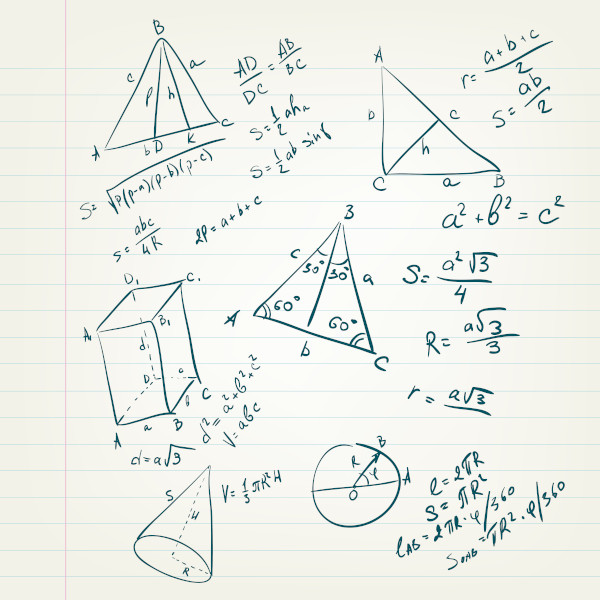 B
c
a
p
h
A
b D
K
C
AD/DC = AB/BC
S=1/2 ah_a
S=1/2 ab sin γ
S=√p(p-a)(p-b)(p-c)
S=abc/4R
2P=a+b+c
A
D
c
h
C
a
B
r=a+b+c/2
S=ab/2
a²+b²=c²
B
c
30°
30°
a
A
60°
60°
b
C
S=a²√3/4
R=a√3/3
r=a√3
D₁
C₁
A₁
B₁
d
D
c
C
b
A
a
B
d²=a²+b²+c²
V=abc
d=a√3
S
H
R
V=1/3πR²H
B
R
φ
A
O
l=2πR
S=πR²
l_AB=2πR·φ/360
S_OAB=πR²·φ/360